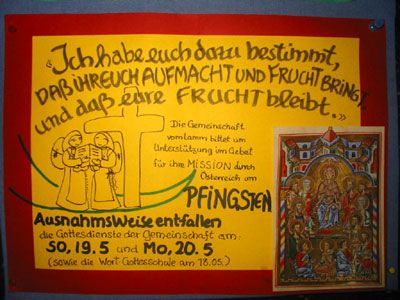 «Ich habe euch dazu bestimmt,
DAß IHR EUCH AUFMACHT UND FRUCHT BRINGT
und daß eure FRUCHT bleibt.»
Die Gemeinschaft
vom Lamm bittet um
Unterstützung im Gebet
für ihre MISSION durch
Österreich um
PFINGSTEN
Ausnahmsweise entfallen
die Gottesdienste der Gemeinschaft am:
SO, 19.5 und MO, 20.5
(sowie die Wort-Gottesschule am 18.05.)